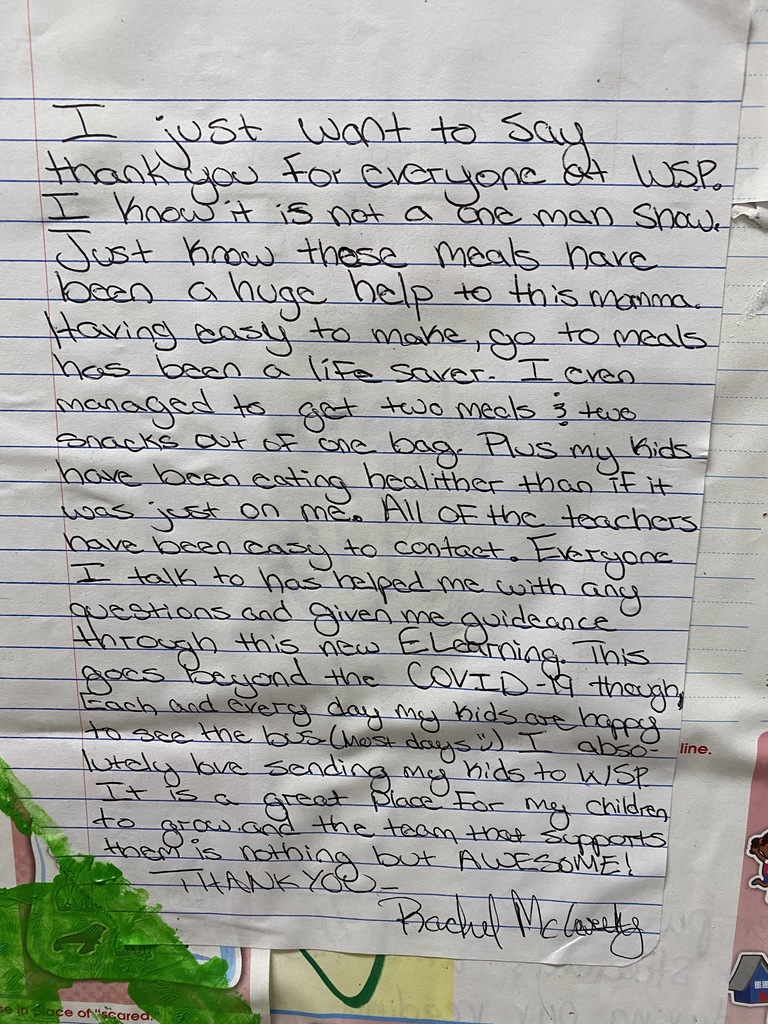 I just want to say
thank you for everyone at WSP.
I know it is not a one man show.
Just know these meals have
been a huge help to this momma.
Having easy to make, go to meals
has been a life saver. I even
managed to get two meals & two
snacks out of one bag. Plus my kids
have been eating healither than if it
was just on me. All of the teachers
have been easy to contact. Everyone
I talk to has helped me with any
questions and given me guideance
through this new ELearning. This
goes beyond the COVID-19 though,
Each and every day my kids are happy
to see the bus (most days :)) I abso-
lutely love sending my kids to WSP.
It is a great place for my children
to grow and the team that supports
them is nothing but AWESOME!
THANK YOU -
Rachel
line.
se in place of "scared."